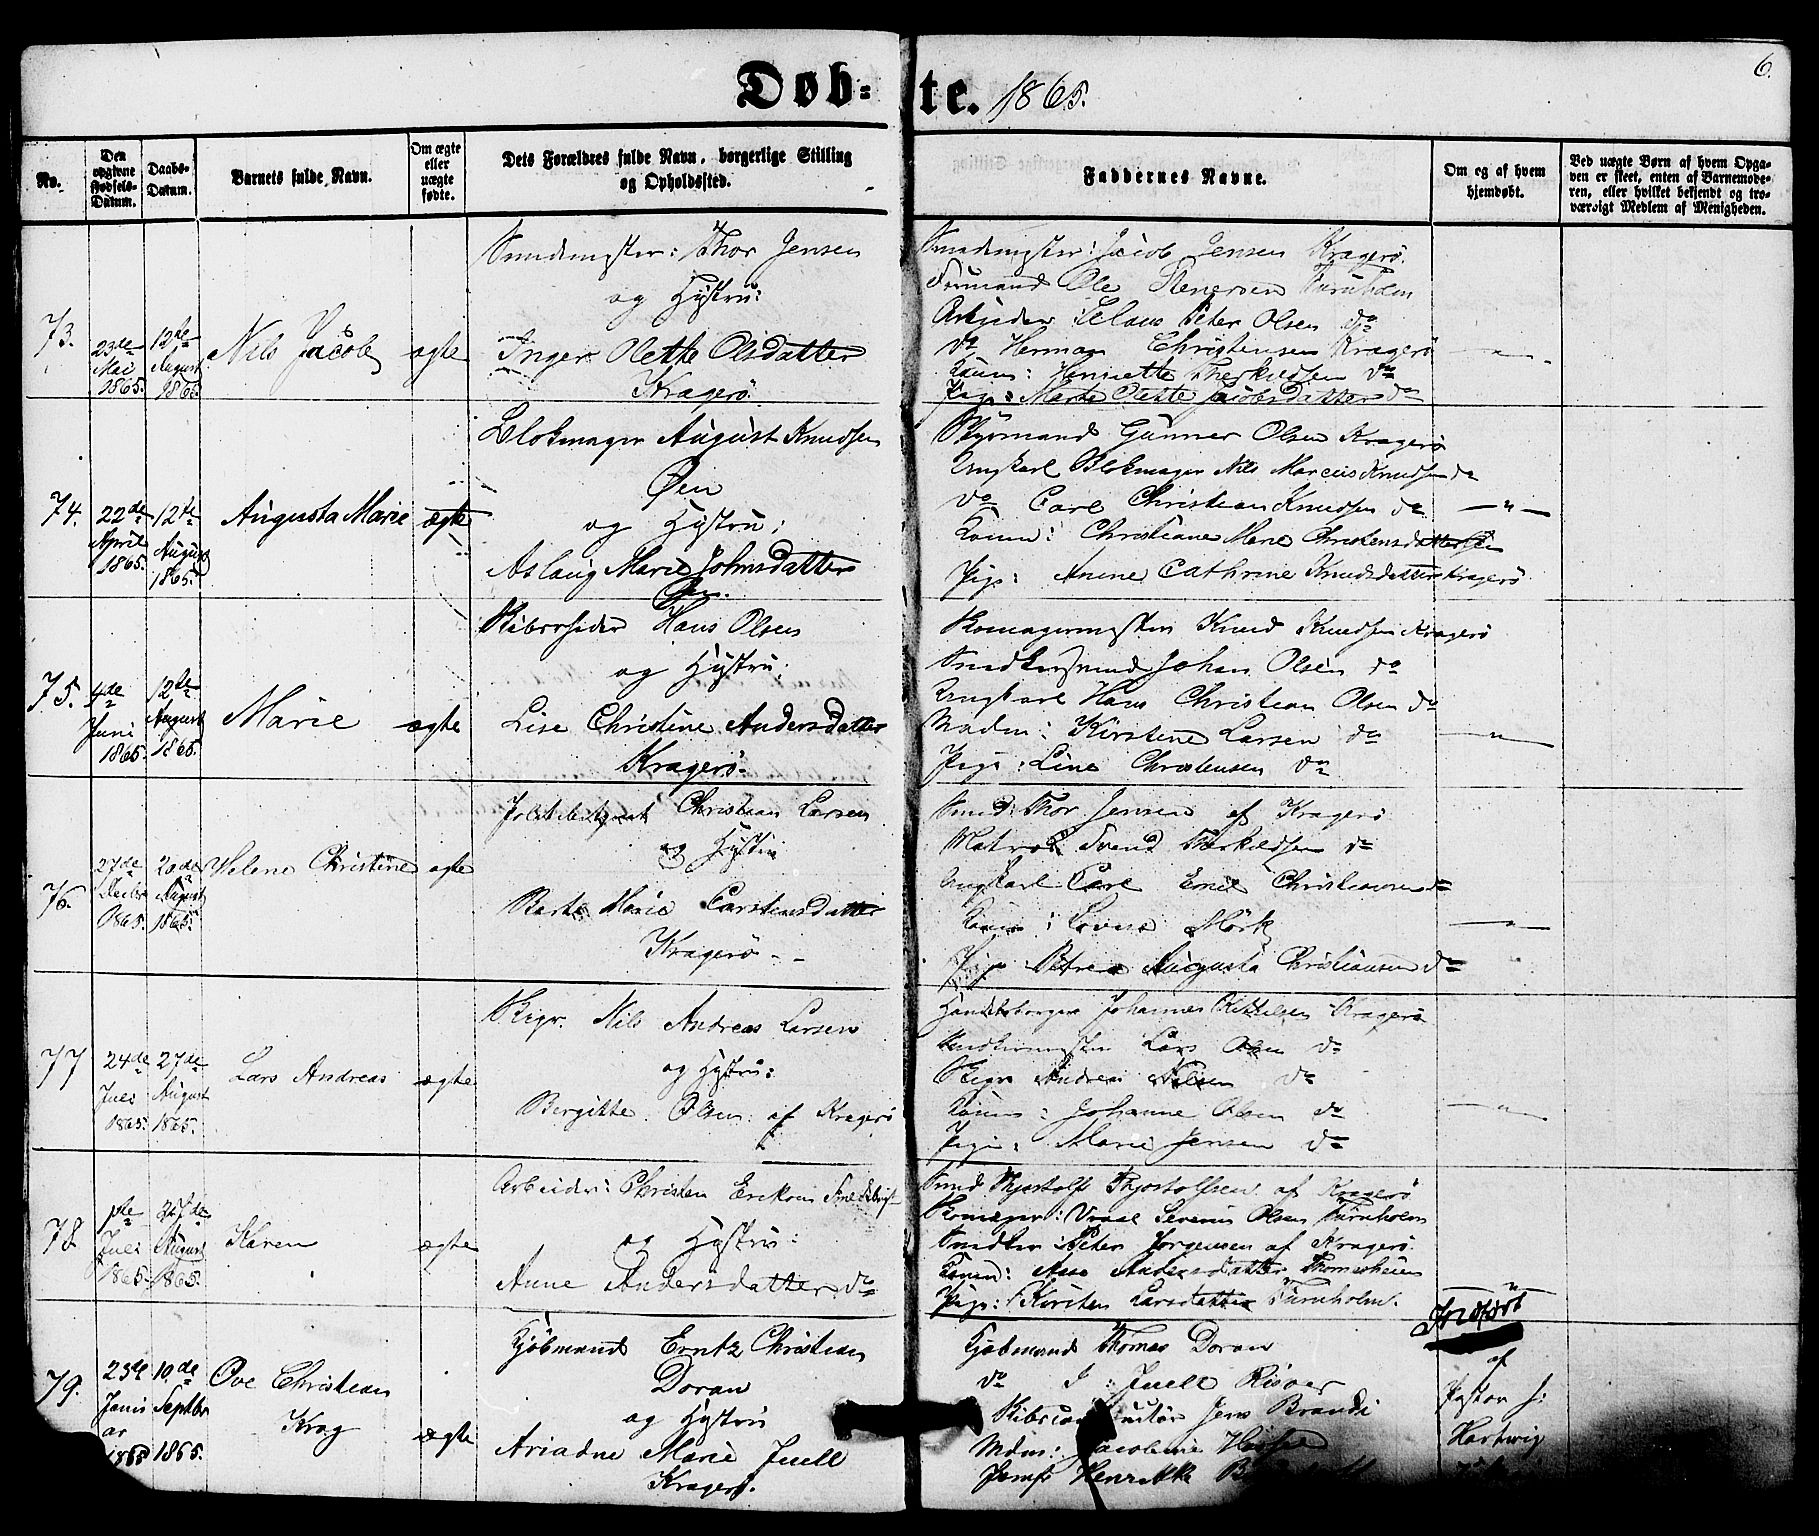 6.
Døb-te. 1865.
No.
Den opgivne Fødsels-Datum.
Daabs-Datum.
Barnets fulde Navn.
Om ægte eller uægte fødte.
Dets Forældres fulde Navn, borgerlige Stilling og Opholdssted.
Faddernes Navne.
Om og af hvem hjemdøbt.
Ved uægte Børn af hvem Opga-
ven er skeet, enten af Barnemode-
ren, eller hvilket bekjendt og tro-
værdigt Medlem af Menigheden.
73.
23de Mai 1865.
12te August 1865.
Nils Jacob
ægte
Smedmester: Thor Jensen
og Hustru:
Inger Olette Olsdatter
Kragerø
Smedmester: Jacob Jensen Kragerø.
Formand Ole Stenersen
Arbeider: Claus Peter Olsen do
do Herman Christensen Kragerø
Konen: Henriette Therkildsen do
Pige: Marte Olette Jacobsdatter do
74.
22de April 1865.
12te August 1865.
Augusta Marie
ægte
Blokmager August Knudsen
Øen
og Hustru:
Aslaug Marie Johnsdatter
Øen.
Styrmand Gunner Olsen Kragerø
Ungkarl Blokmager Nils Marcus Knudsen do
do Carl Christian Knudsen do
Konen: Christiane Marie
Pige: Anine Cathrine Knudsdatter Kragerø
75.
4de Juni 1865.
12te August 1865.
Marie
ægte
Hans Olsen
og Hustru:
Lise Christine Andersdatter
Kragerø.
Knud Knudsen Kragerø
Johan Olsen do
Ungkarl Hans Christian Olsen do
Madm: Kirstene Larsen do
Pige: Line Christensen do
76.
27de 1865.
20de August 1865.
Helene Christine
ægte
Politibetjent Christian Larsen
og Hustru
Berte Marie Carstensdatter
Kragerø
Smed: Thor Jensen af Kragerø
Matros Svend Therkildsen do
Ungkarl Carl Emil Christiansen do
Konen: Lovise Mørk
Pige Petrea Augusta Christiansen do
77
24de Juli 1865.
27de August 1865.
Lars Andreas
ægte
Nils Andreas Larsen
og Hustru:
Bergitte Olsen af Kragerø
Handelsborger Johannes Kittelsen Kragerø
Lars Olsen do
Andreas Nilsen do
Konen: Johanne Olsen do
Pige: Marie Jensen do
78
1ste Juli 1865.
27de August 1865.
Karen
ægte
Arbeider: Christen Eriksen
og Hustru:
Anne Andersdatter do
Smed Thjostolf Thjostolfsen af Kragerø
Severin Olsen Furuholm
Peter Jørgensen af Kragerø.
Konen: Andersdatter
Pige: Kirsten Larsdatter Furuholm.
79.
23de Januar 1865
10de Septbr 1865.
Ove Christian
Krag
ægte
Kjøbmand Erntz Christian
Doran
og Hustru
Ariadne Marie Juell
Kragerø.
Kjøbmand Thomas Doran
do J: Juell Risøer
Jens Brandt
Mdm: Jacobine
Jomf Henrikke
Indført
af
Pastor J:
Hartwig